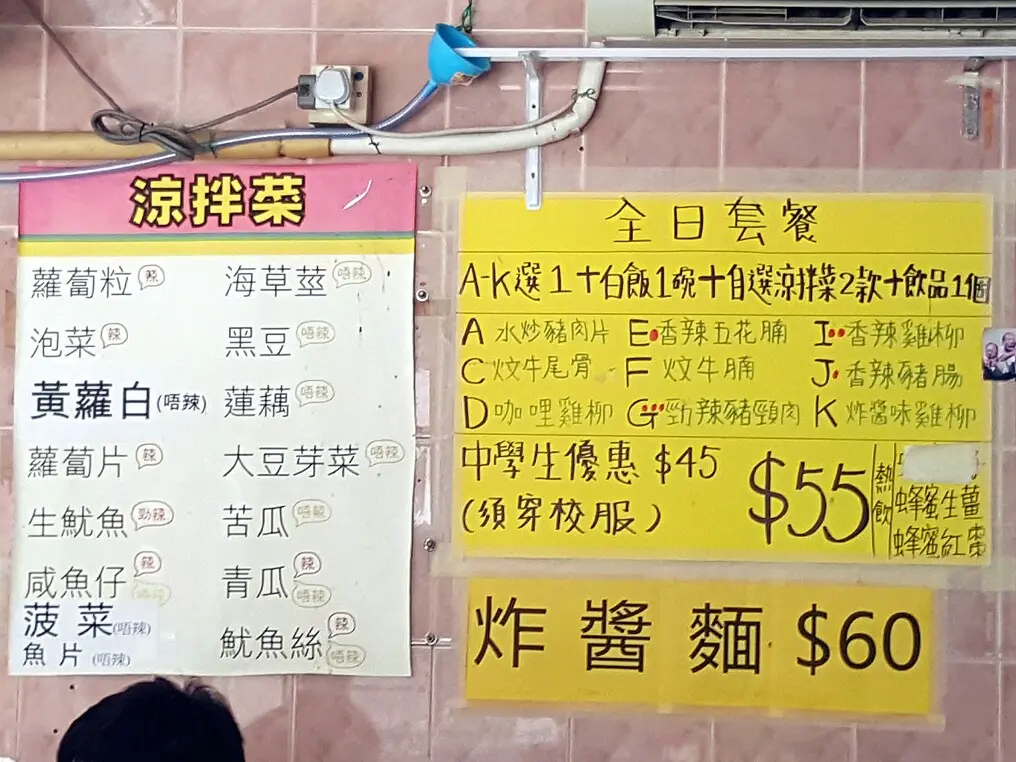 涼拌菜
蘿蔔粒 辣
泡菜 辣
黃蘿白(唔辣)
蘿蔔片 辣
生魷魚 勁辣
咸魚仔 辣 唔辣
菠菜(唔辣)
魚片 (唔辣)
海草莖 唔辣
黑豆 唔辣
蓮藕 唔辣
大豆芽菜 唔辣
苦瓜 唔辣
青瓜 辣 唔辣
魷魚絲 辣 唔辣
全日套餐
A-K選1+白飯1碗+自選涼拌菜2款+飲品1個
A 水炒豬肉片 E 香辣五花腩 I 香辣雞柳
C 炆牛尾骨 F 炆牛腩 J 香辣豬腸
D 咖哩雞柳 G 勁辣豬頸肉 K 炸醬味雞柳
中學生優惠 $45
(須穿校服)
$55
熱飲
蜂蜜生薑
蜂蜜紅棗
炸醬麵 $60